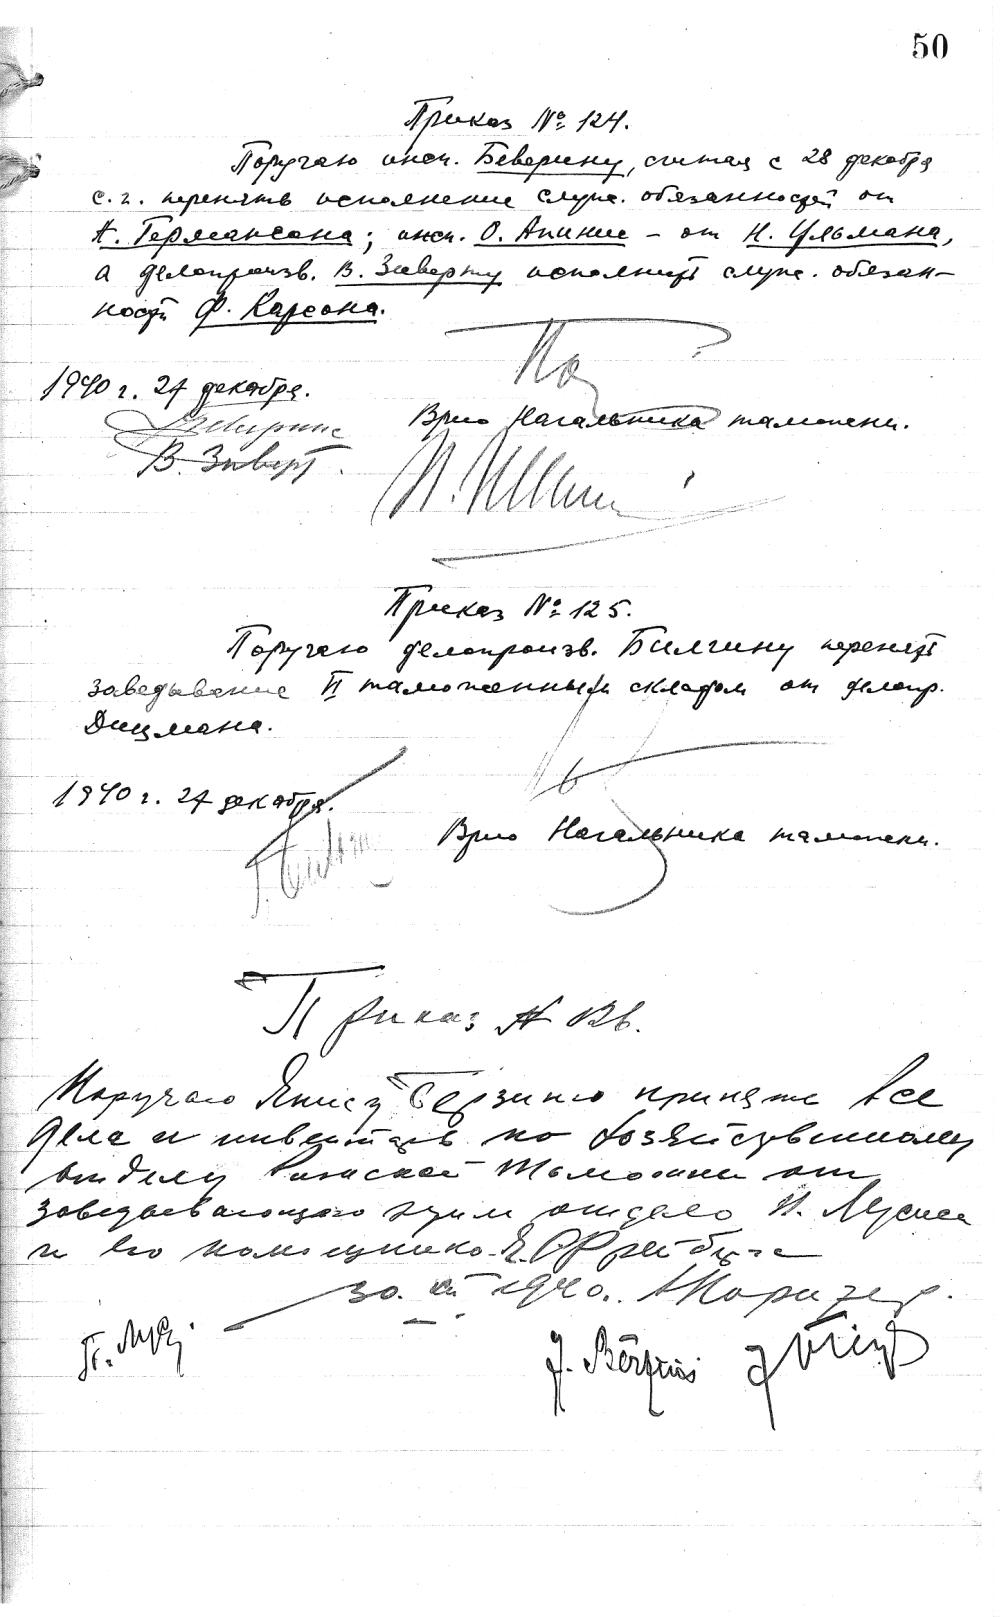 50
Приказ № 124.
Поручаю инсп. Беверину, считая с 28 декабря
с. г. перенять исполнение служ. обязанностей от
А. Германсона; инсп. О. Апиние – от Н. Ульмана,
а делопроизв. В. Зиверту исполнять служ. обязан-
ности Ф. Карсона.
1940 г. 27 декабря.
Врио Начальника таможни.
В. Зиверт.
Приказ № 125.
Поручаю делопроизв. Билгину перенять
заведывание II таможенным складом от делопр.
Дицмана.
1940 г. 27 декабря.
Врио Начальника таможни.
Приказ №
Поручаю Янису Берзиню принять все
дела и инвентарь по хозяйственному
отделу Рижской Таможни от
заведывающего этим отделом П. Мусиса
и его помощника Я. Фрейберга
30. XII 1940.
J. Bērziņš